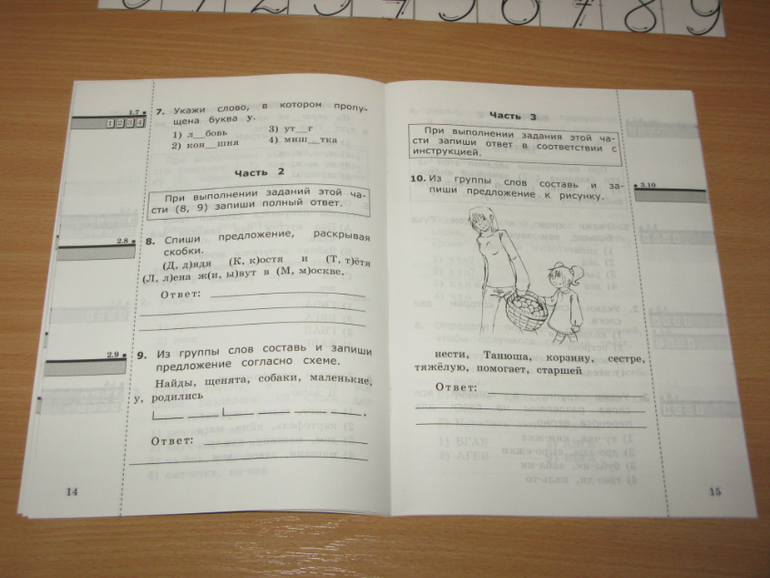 1.7
1 2 3 4
7. Укажи слово, в котором пропу-
щена буква у.
1) л__бовь 3) ут__г
2) кон__шня 4) миш__тка
Часть 2
При выполнении заданий этой ча-
сти (8, 9) запиши полный ответ.
2.8
8. Спиши предложение, раскрывая
скобки.
(Д, д)ядя (К, к)остя и (Т, т)ётя
(Л, л)ена ж(и, ы)вут в (М, м)оскве.
Ответ:
2.9
9. Из группы слов составь и запиши
предложение согласно схеме.
Найды, щенята, собаки, маленькие,
у, родились
Ответ:
14
Часть 3
При выполнении задания этой ча-
сти запиши ответ в соответствии с
инструкцией.
3.10
10. Из группы слов составь и за-
пиши предложение к рисунку.
нести, Танюша, корзину, сестре,
тяжёлую, помогает, старшей
Ответ:
15